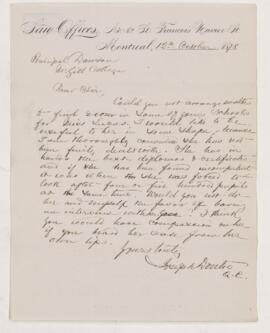 Law Offices, No. 67 St. Francois Xavier St.
Montreal, 12th October 1878
Principal Dawson
McGill College
Dear Sir,
Could you not arrange matters
to find room in some of your Schools
for Miss I would like to be
useful to her in some shape, because
I am thoroughly convinced she has not
been fairly dealt with. She has in
hand the best diplomas & certificates
and if she has been found incompetent
it was when she was forced to
look after four or five hundred pupils
at the same time. Would you do
her and myself the favor of having
an interview with her? I think
you would have compassion on her
if you heard her case from her
own lips.
Yours truly,
Joseph Doutre
Q.C.